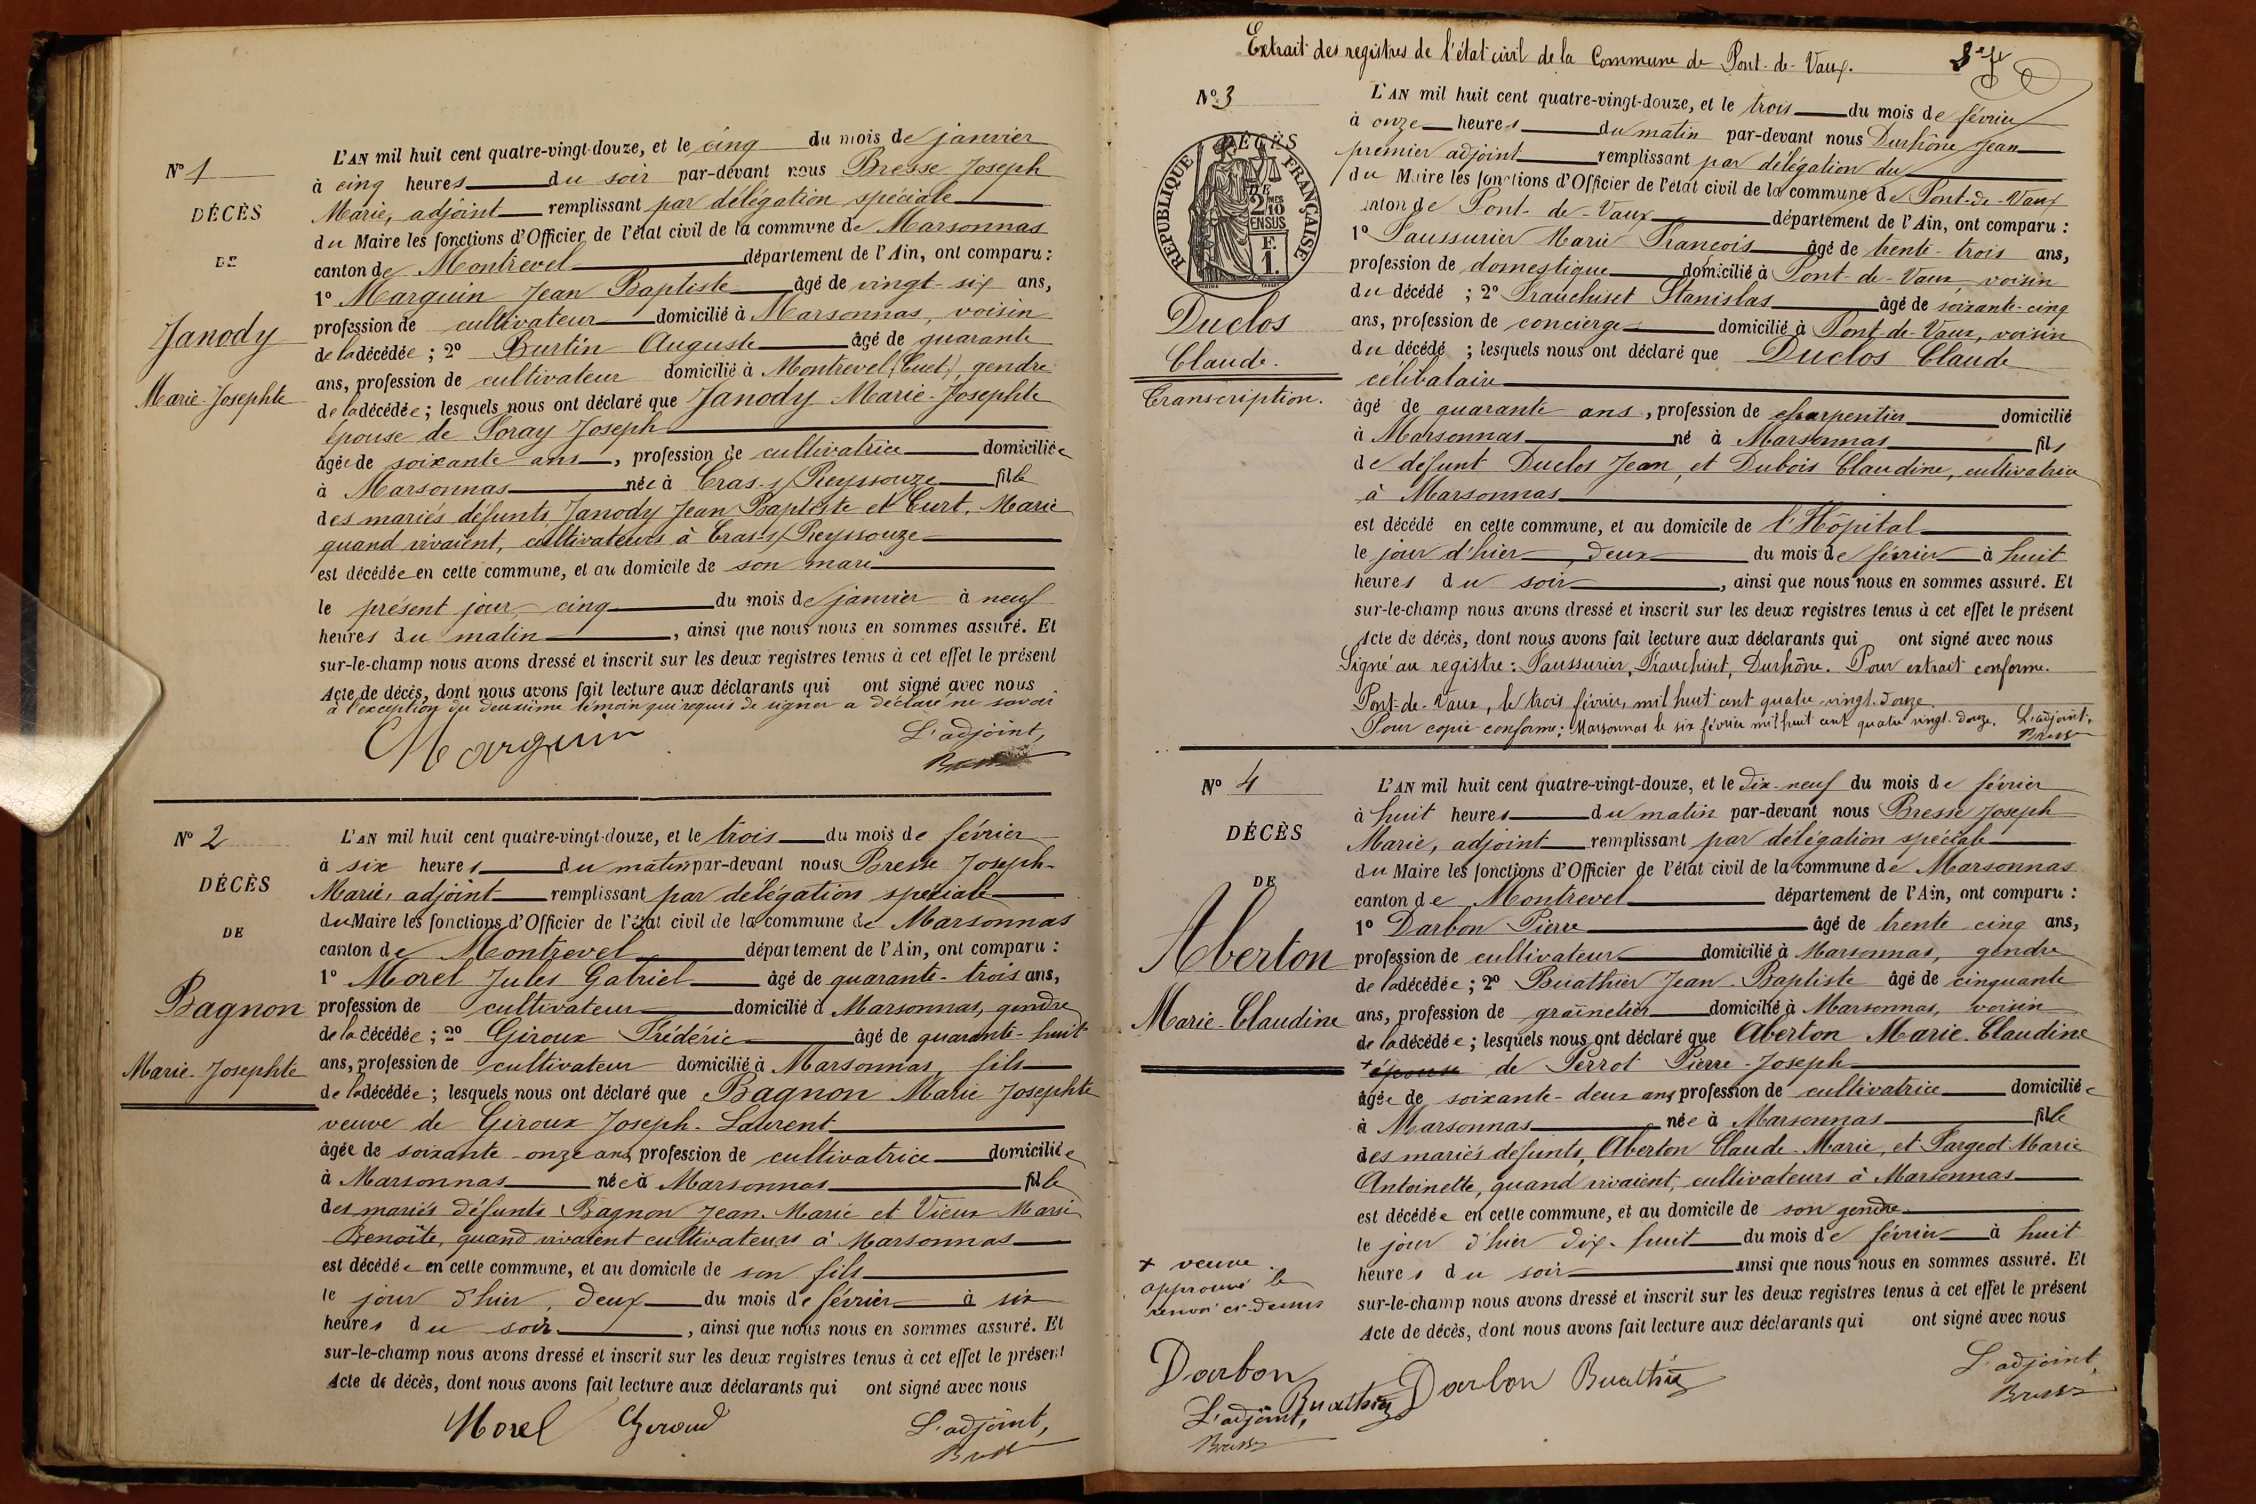 Nº 1
DÉCÈS
DE
Janody
Marie-Josephte
L'AN mil huit cent quatre-vingt-douze, et le cinq du mois de janvier
à cinq heures du soir par-devant nous Bresse Joseph
Marie, adjoint remplissant par délégation spéciale
du Maire les fonctions d'Officier de l'état civil de la commune de Marsonnas
canton de Montrevel département de l'Ain, ont comparu :
1º Marguin Jean Baptiste âgé de vingt-six ans,
profession de cultivateur domicilié à Marsonnas, voisin
de la décédée ; 2º Burtin Auguste âgé de quarante
ans, profession de cultivateur domicilié à Montrevel (Cuet), gendre
de la décédée ; lesquels nous ont déclaré que Janody Marie-Josephte
épouse de Joseph
âgée de soixante ans, profession de cultivatrice domiciliée
à Marsonnas née à Cras-s/Reyssouze fille
des mariés défunts Janody Jean Baptiste et Curt, Marie
quand vivaient, cultivateurs à Cras-s/Reyssouze
est décédée en cette commune, et au domicile de son mari
le présent jour, cinq du mois de janvier à neuf
heures du matin, ainsi que nous nous en sommes assuré. Et
sur-le-champ nous avons dressé et inscrit sur les deux registres tenus à cet effet le présent
Acte de décès, dont nous avons fait lecture aux déclarants qui ont signé avec nous
à l'exception du deuxième témoin qui requis de signer a déclaré ne savoir
Marguin
L'adjoint,
Bresse
Nº 2
DÉCÈS
DE
Bagnon
Marie-Josephte
L'AN mil huit cent quatre-vingt-douze, et le trois du mois de février
à six heures du matin par-devant nous Bresse Joseph-
Marie, adjoint remplissant par délégation spéciale
du Maire les fonctions d'Officier de l'état civil de la commune de Marsonnas
canton de Montrevel département de l'Ain, ont comparu :
1º Morel Jules Gabriel âgé de quarante-trois ans,
profession de cultivateur domicilié à Marsonnas, gendre
de la décédée ; 2º Giroux Frédéric âgé de quarante-huit
ans, profession de cultivateur domicilié à Marsonnas, fils
de la décédée ; lesquels nous ont déclaré que Bagnon Marie Josephte
veuve de Giroux Joseph-Laurent
âgée de soixante-onze ans, profession de cultivatrice domiciliée
à Marsonnas née à Marsonnas fille
des mariés défunts Bagnon Jean-Marie et Vieux Marie
Benoîte, quand vivaient cultivateurs à Marsonnas
est décédée en cette commune, et au domicile de son fils
le jour d'hier, deux du mois de février à six
heures du soir, ainsi que nous nous en sommes assuré. Et
sur-le-champ nous avons dressé et inscrit sur les deux registres tenus à cet effet le présent
Acte de décès, dont nous avons fait lecture aux déclarants qui ont signé avec nous
Morel Giroud
L'adjoint,
Bresse
Extrait des registres de l'état civil de la Commune de Pont-de-Vaux.
Nº 3
DÉCÈS
DE
RÉPUBLIQUE FRANÇAISE
2/10 EN SUS
F.
1.
Duclos
Claude.
Transcription.
L'AN mil huit cent quatre-vingt-douze, et le trois du mois de février
à onze heures du matin par-devant nous Durhône Jean
premier adjoint remplissant par délégation du
du Maire les fonctions d'Officier de l'état civil de la commune de Pont-de-Vaux
canton de Pont-de-Vaux département de l'Ain, ont comparu :
1º Saussurier Marie François âgé de trente-trois ans,
profession de domestique domicilié à Pont-de-Vaux, voisin
du décédé ; 2º Franchiset Stanislas âgé de soixante-cinq
ans, profession de concierge domicilié à Pont-de-Vaux, voisin
du décédé ; lesquels nous ont déclaré que Duclos Claude
célibataire
âgé de quarante ans, profession de charpentier domicilié
à Marsonnas né à Marsonnas fils
de défunt Duclos Jean, et Dubois Claudine, cultivatrice
à Marsonnas
est décédé en cette commune, et au domicile de l'Hôpital
le jour d'hier, deux du mois de février à huit
heures du soir, ainsi que nous nous en sommes assuré. Et
sur-le-champ nous avons dressé et inscrit sur les deux registres tenus à cet effet le présent
Acte de décès, dont nous avons fait lecture aux déclarants qui ont signé avec nous
Signé au registre : Saussurier, Franchiset, Durhône. Pour extrait conforme.
Pont-de-Vaux, le trois février, mil huit cent quatre-vingt-douze
Pour copie conforme ; Marsonnas le six février mil huit cent quatre vingt-douze. L'adjoint,
Bresse
Nº 4
DÉCÈS
DE
Aberton
Marie-Claudine
L'AN mil huit cent quatre-vingt-douze, et le dix-neuf du mois de février
à huit heures du matin par-devant nous Bresse Joseph
Marie, adjoint remplissant par délégation spéciale
du Maire les fonctions d'Officier de l'état civil de la commune de Marsonnas
canton de Montrevel département de l'Ain, ont comparu :
1º Darbon Pierre âgé de trente cinq ans,
profession de cultivateur domicilié à Marsonnas, gendre
de la décédée ; 2º Buathier Jean-Baptiste âgé de cinquante
ans, profession de grainetier domicilié à Marsonnas, voisin
de la décédée ; lesquels nous ont déclaré que Aberton Marie-Claudine
+ épouse de Perrot Pierre-Joseph
âgée de soixante-deux ans profession de cultivatrice domiciliée
à Marsonnas née à Marsonnas fille
des mariés défunts, Aberton Claude-Marie, et Fargeot Marie
Antoinette, quand vivaient, cultivateurs à Marsonnas
est décédée en cette commune, et au domicile de son gendre
le jour d'hier dix-huit du mois de février à huit
heures du soir ainsi que nous nous en sommes assuré. Et
sur-le-champ nous avons dressé et inscrit sur les deux registres tenus à cet effet le présent
Acte de décès, dont nous avons fait lecture aux déclarants qui ont signé avec nous
+ veuve.
approuvé le
renvoi ci-dessus
Darbon
Buathier
L'adjoint,
Bresse
Darbon Buathier
L'adjoint,
Bresse